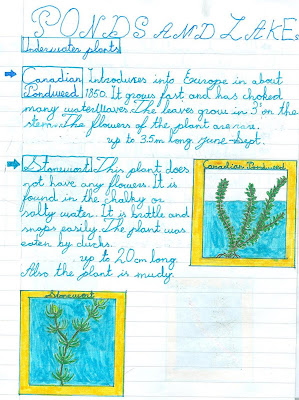 PONDS AND LAKES
Underwater plants
Canadian Introduces into Europe in about
Pondweed 1850. It grows fast and has choked
many waterWeaves. The leaves grow in 3's on the
stem. The flowers of the plant are rare.
up to 3.5m long June-Sept.
Stonewort This plant does
not have any flowers. It is
found in the chalky or
salty water. It is brittle and
snaps easily. The plant was
eaten by ducks.
up to 20cm long
Also the plant is mudy.
Canadian Pondweed
Stonewort